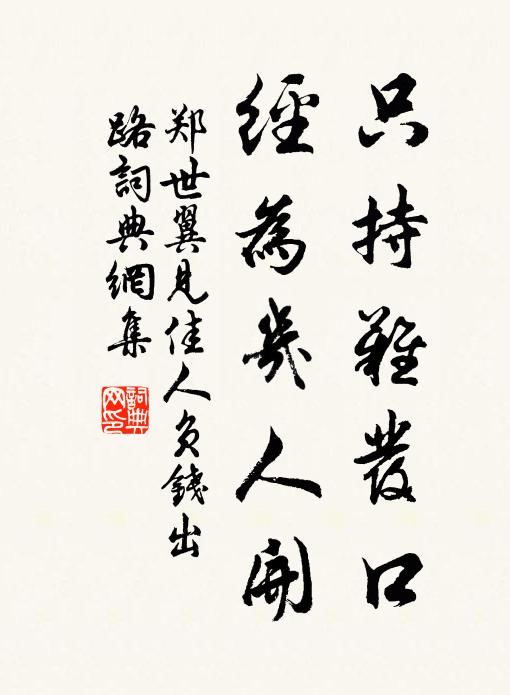 只持難發口
經為幾人開
郑世翼見佳人負錢出
路詞典網集
詞典
网印